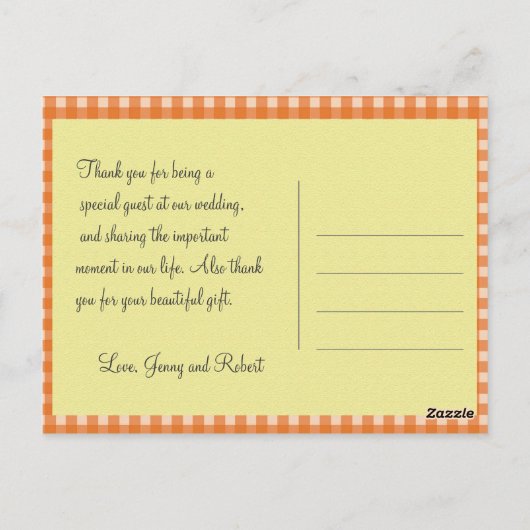 Thank you for being a
special guest at our wedding,
and sharing the important
moment in our life. Also thank
you for your beautiful gift.
Love, Jenny and Robert
Zazzle